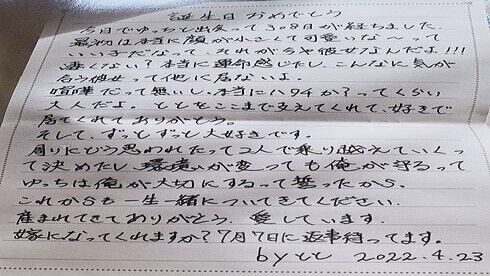 誕生日おめでとう
今日でゆっちと出会って308日が経ちました。
最初は本当に顔が小さくて可愛いな〜って
いい子だなって、それが今や彼女なんだよ!!!
凄くない?本当に運命感じたし、こんなに気が
合う彼女って他に居ないよ。
喧嘩だって無いし、本当にハタチか?ってくらい
大人だよ。ととをここまで支えてくれて、好きで
居てくれてありがとう。
そして、ずっとずっと大好きです。
周りにどう思われたって2人で乗り越えていくっ
て決めたし環境が変っても俺が守るって
ゆっちは俺が大切にするって誓ったからS。
これからS一生一緒についてきてください。
産まれてきてありがとう。愛しています。
嫁になってくれますか?7月7日に返事待ってます。
byとと 2022.4.23